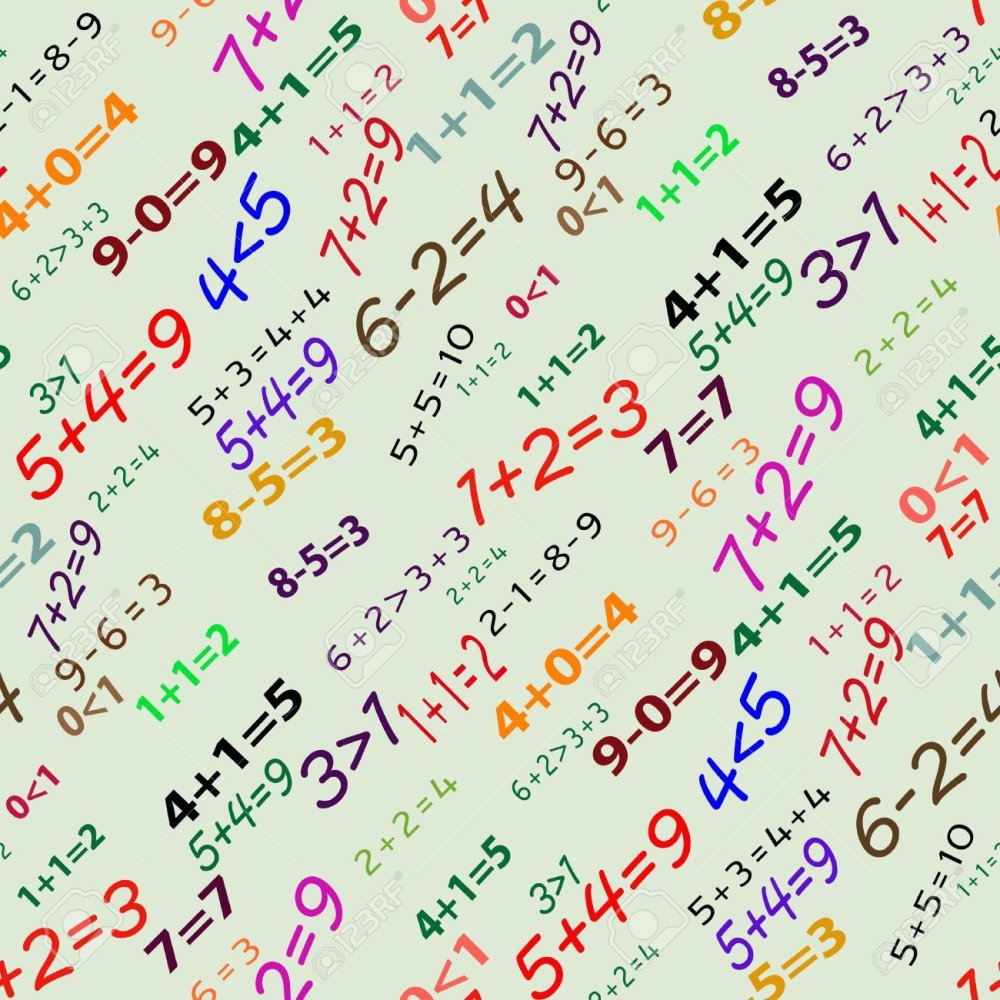 2-1=8-9
9-6=3
7+2=9
4+1=5
0<1
7=7
8-5=3
8-5=3
6+2>3+3
2+2=4
1+1=2
1+1=2
7+2=9
9-6=3
0<1
4+0=4
6+2>3+3
9-0=9
4<5
7+2=9
6-2=4
1+1=2
4+1=5
5+4=9
3>1
1+1=2
0<1
2+2=4
3>1
5+4=9
5+3=4+4
5+4=9
5+5=10
1+1=2
1+1=2
1+2=3
7=7
4+1=5
2+2=4
8-5=3
9-6=3
7+2=9
0<1
7=7
=2
7+2=9
9-6=3
0<1
8-5=3
6+2>3+3
2+2=4
2-1=8-9
4+1=5
1+1=2
1+1=
1+1=2
1+1=2
4+0=4
9-0=9
7+2=9
4
4+1=5
3>1
6+2>3+3
4<5
6-2=4
0<1
5+4=9
2+2=4
1+1=2
5+4=9
5+3=4+4
5+5=10
1+1=2
+2=3
7=7
4+1=5
3>1
5+4=9
6=3
2=9
0<1
2+2=4
-5=3